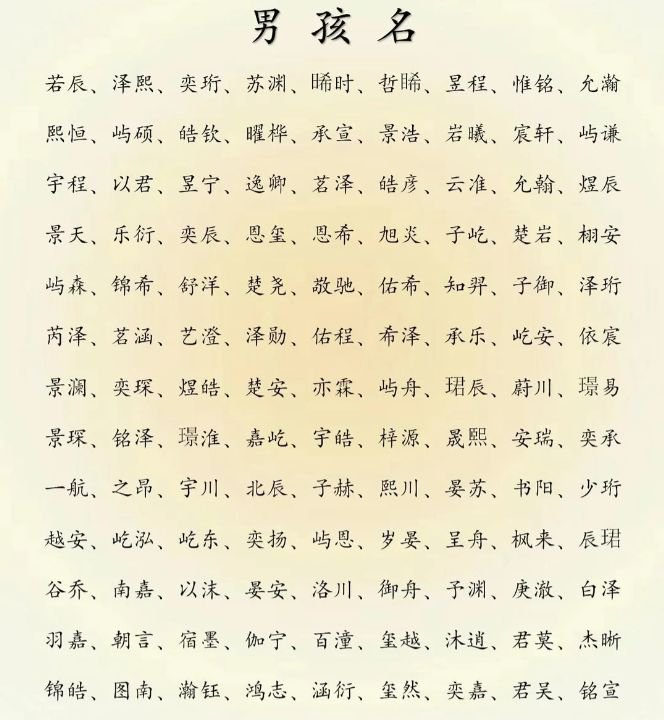 男孩名
若辰、泽熙、奕珩、苏渊、晞时、哲晞、昱程、惟铭、允瀚
熙恒、屿硕、皓钦、曜桦、承宣、景浩、岩曦、宸轩、屿谦
宇程、以君、昱宁、逸卿、茗泽、皓彦、云准、允翰、煜辰
景天、乐衍、奕辰、恩玺、恩希、旭炎、子屹、楚岩、栩安
屿森、锦希、舒洋、楚尧、敬驰、佑希、知羿、子御、泽珩
芮泽、茗涵、艺澄、泽勋、佑程、希泽、承乐、屹安、依宸
景澜、奕琛、煜皓、楚安、亦霖、屿舟、珺辰、蔚川、璟易
景琛、铭泽、璟淮、嘉屹、宇皓、梓源、晟熙、安瑞、奕承
一航、之昂、宇川、北辰、子赫、熙川、晏苏、书阳、少珩
越安、屹泓、屹东、奕扬、屿恩、岁晏、呈舟、枫来、辰珺
谷乔、南嘉、以沫、晏安、洛川、御舟、予渊、庚澈、白泽
羽嘉、朝言、宿墨、伽宁、百潼、玺越、沐逍、君莫、杰晰
锦皓、图南、瀚钰、鸿志、涵衍、玺然、奕嘉、君吴、铭宣